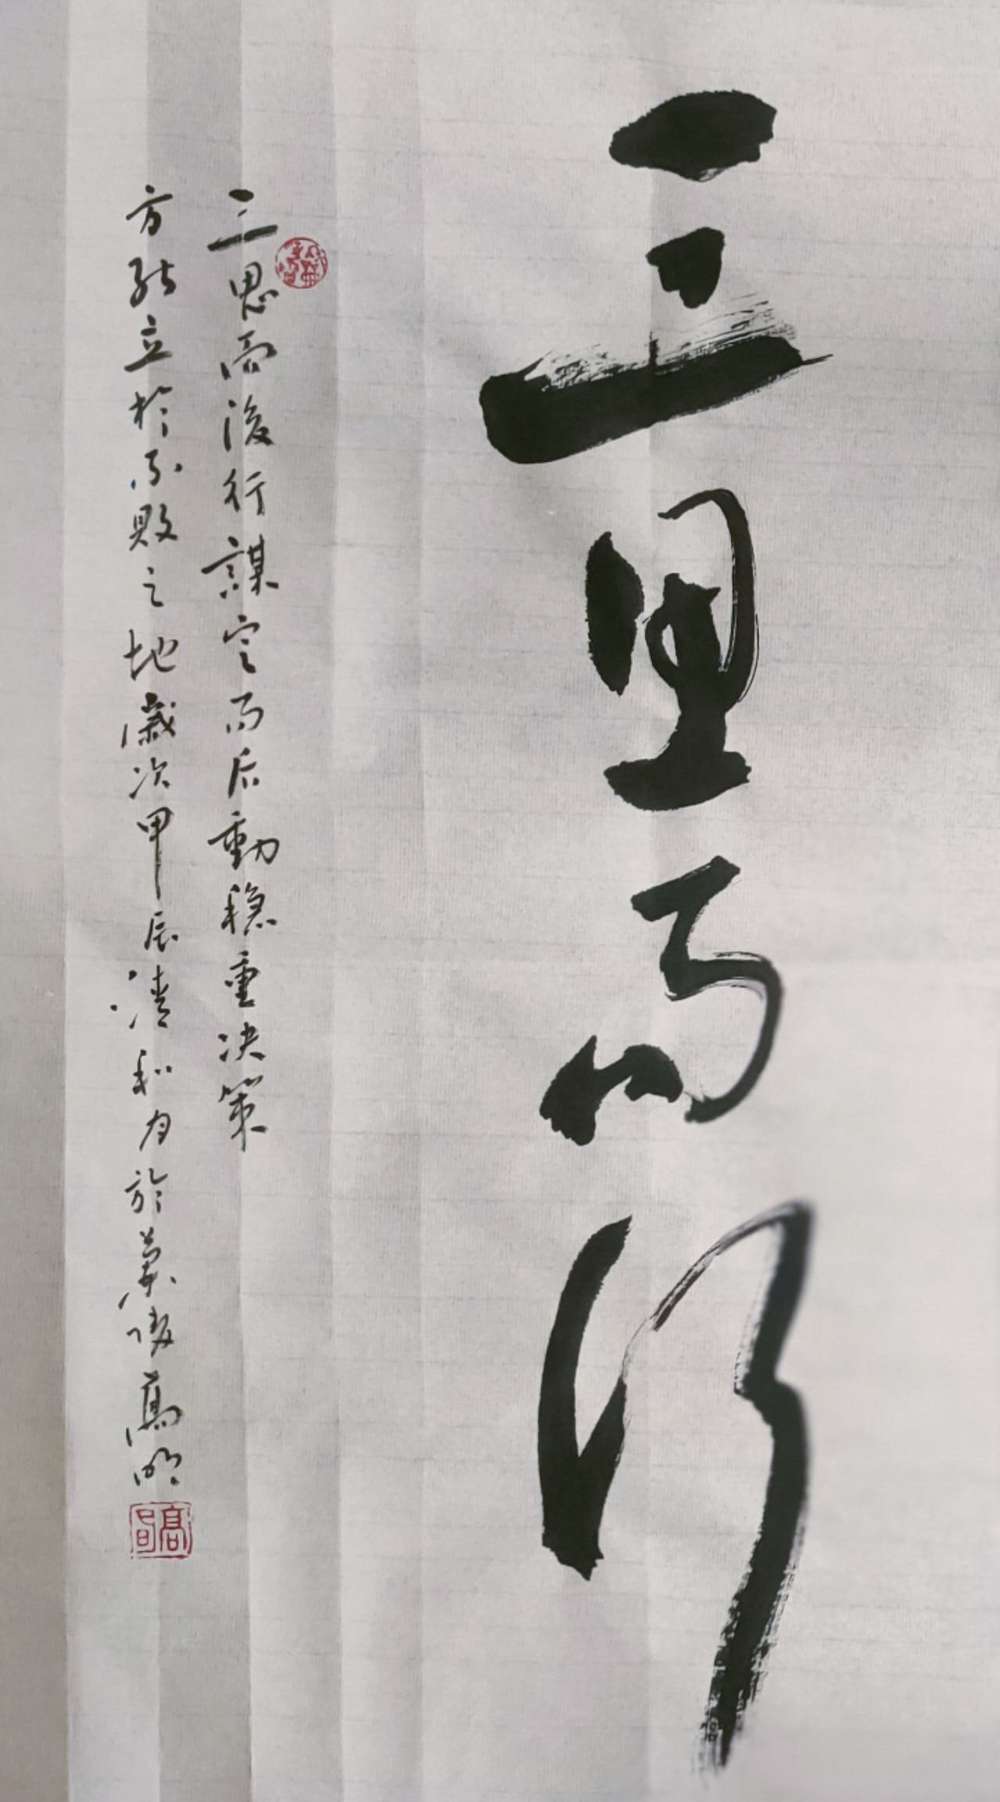 三思而行
三思而後行謀定而后動穩重決策
方能立於不敗之地歲次甲辰清和月於
高